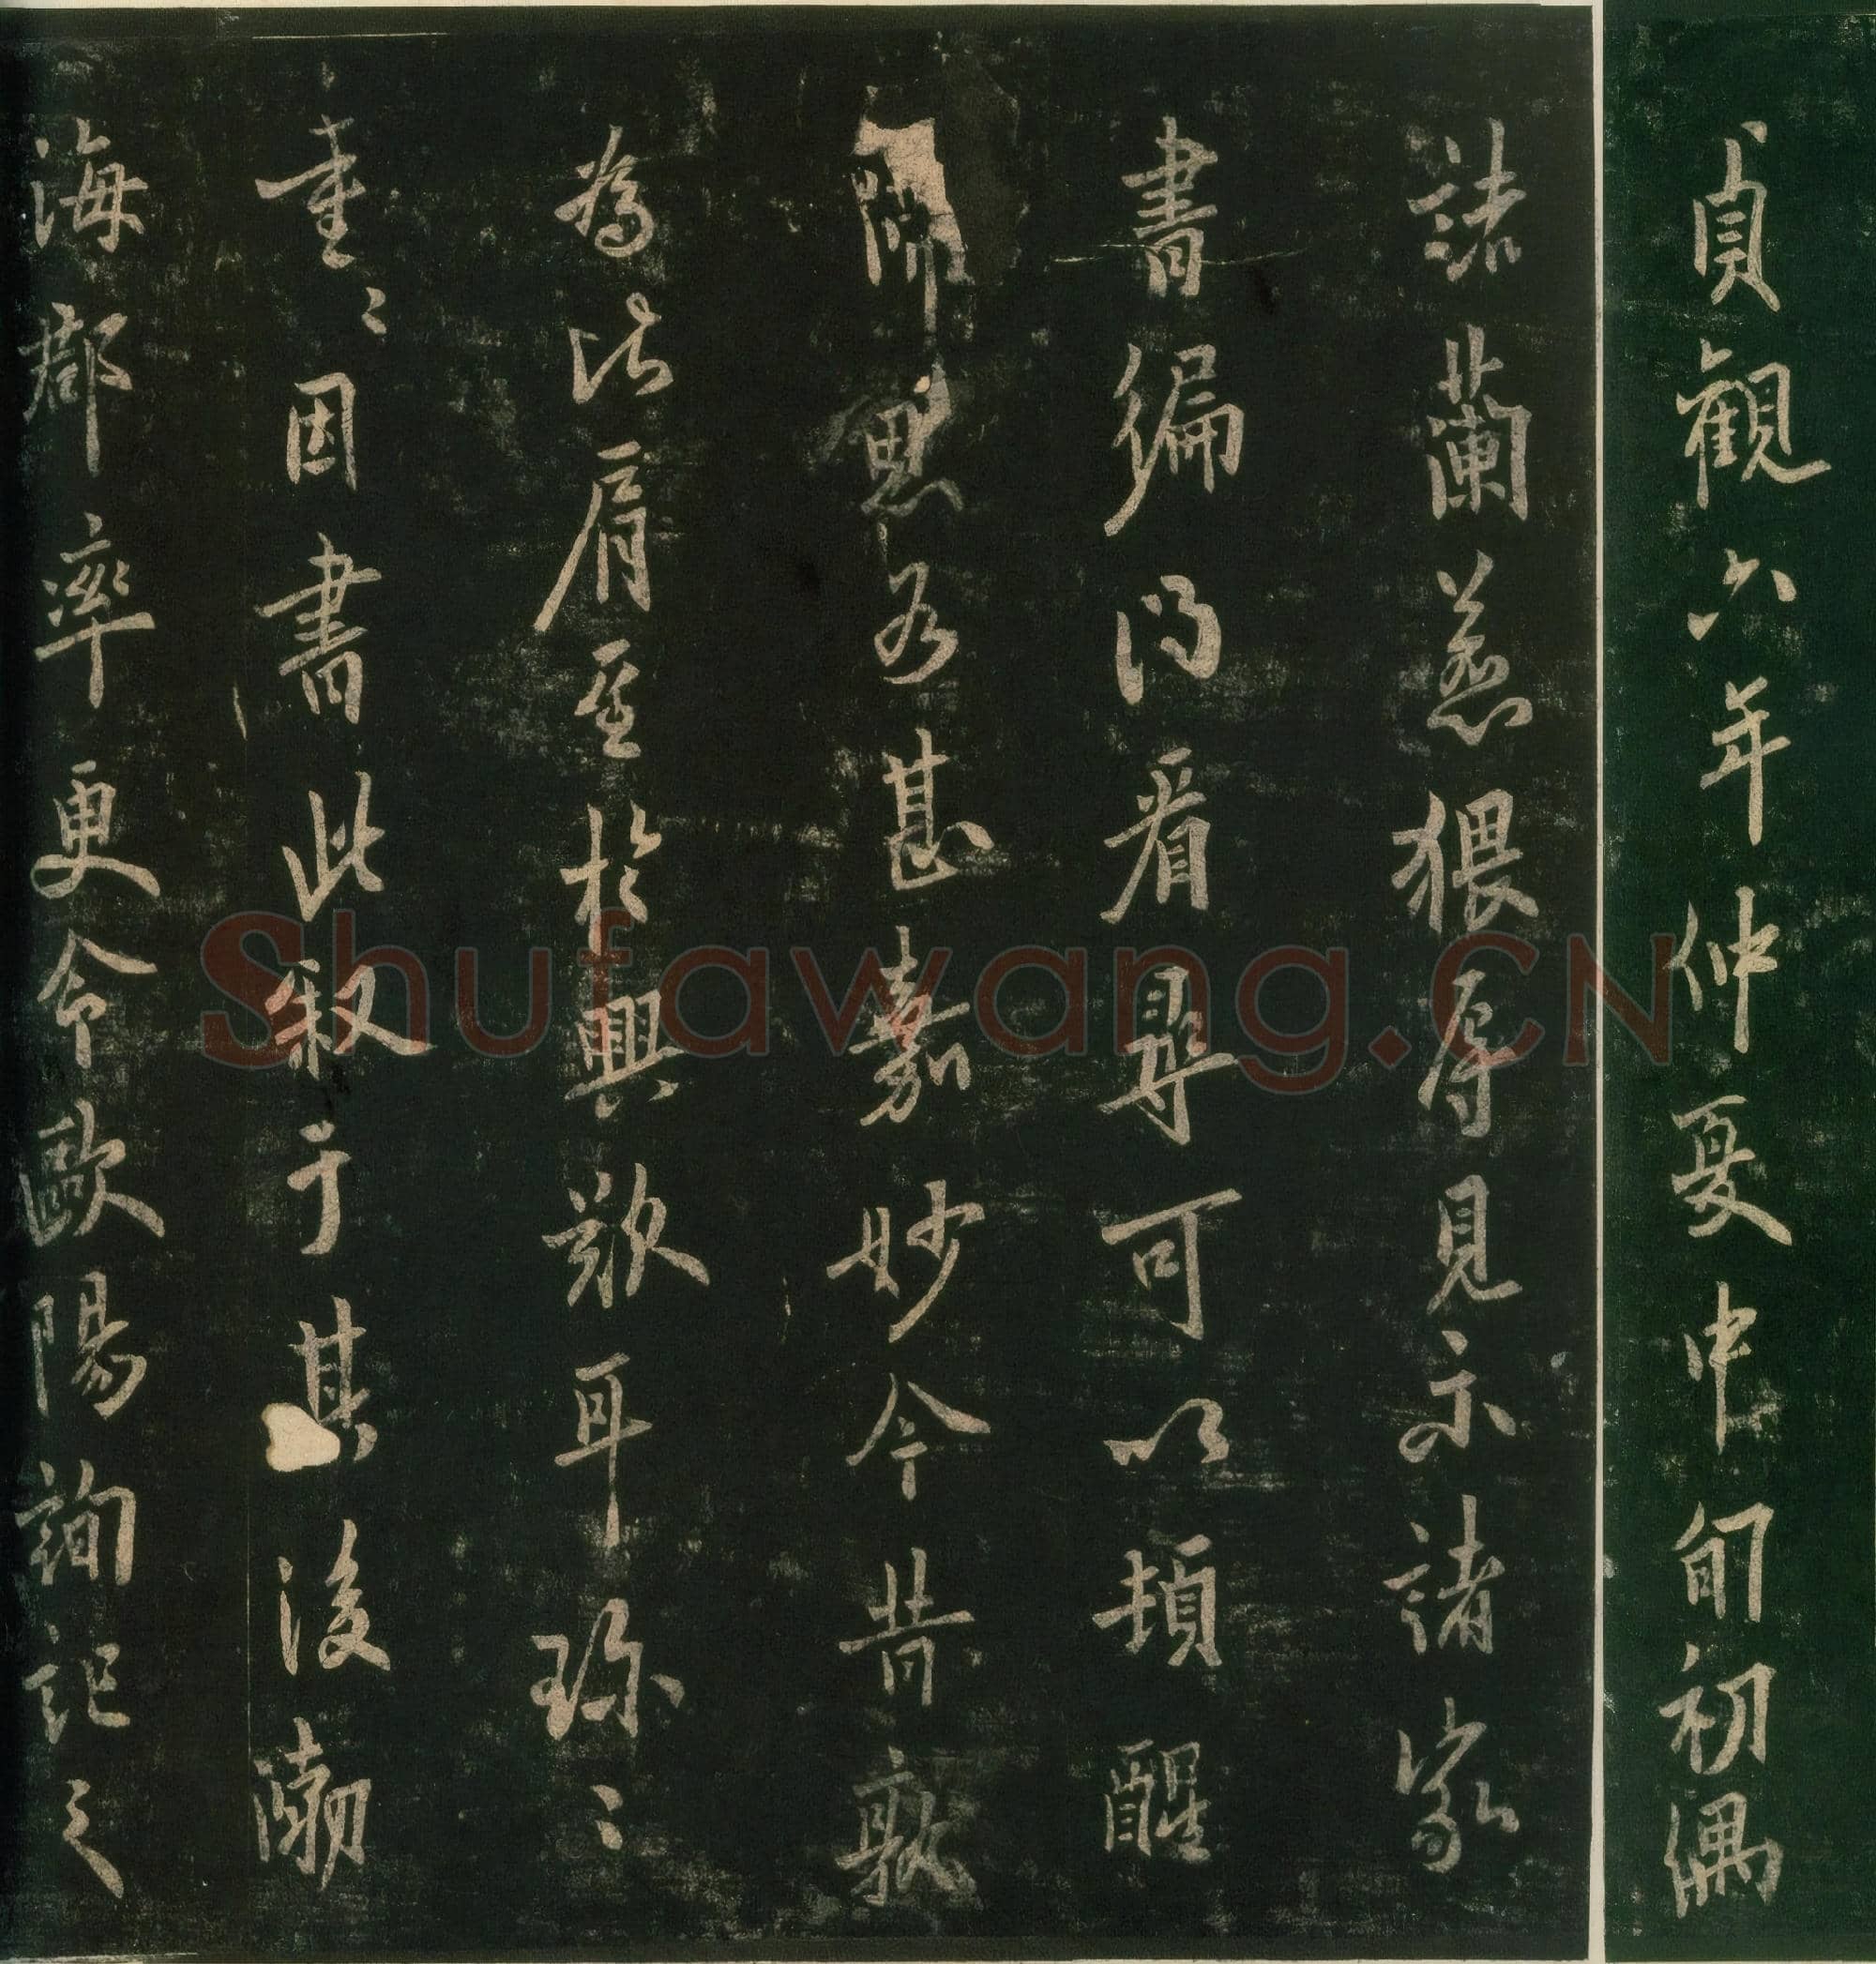 貞觀六年仲夏中旬初偶
詣蘭惹猥辱見示諸家
書徧得看尋可以頓醒
思甚嘉妙今昔孰
為比肩至於興歎耳珍〻
重〻因書此叙于其後渤
海郡率更令歐陽詢記之
Shufawang.CN